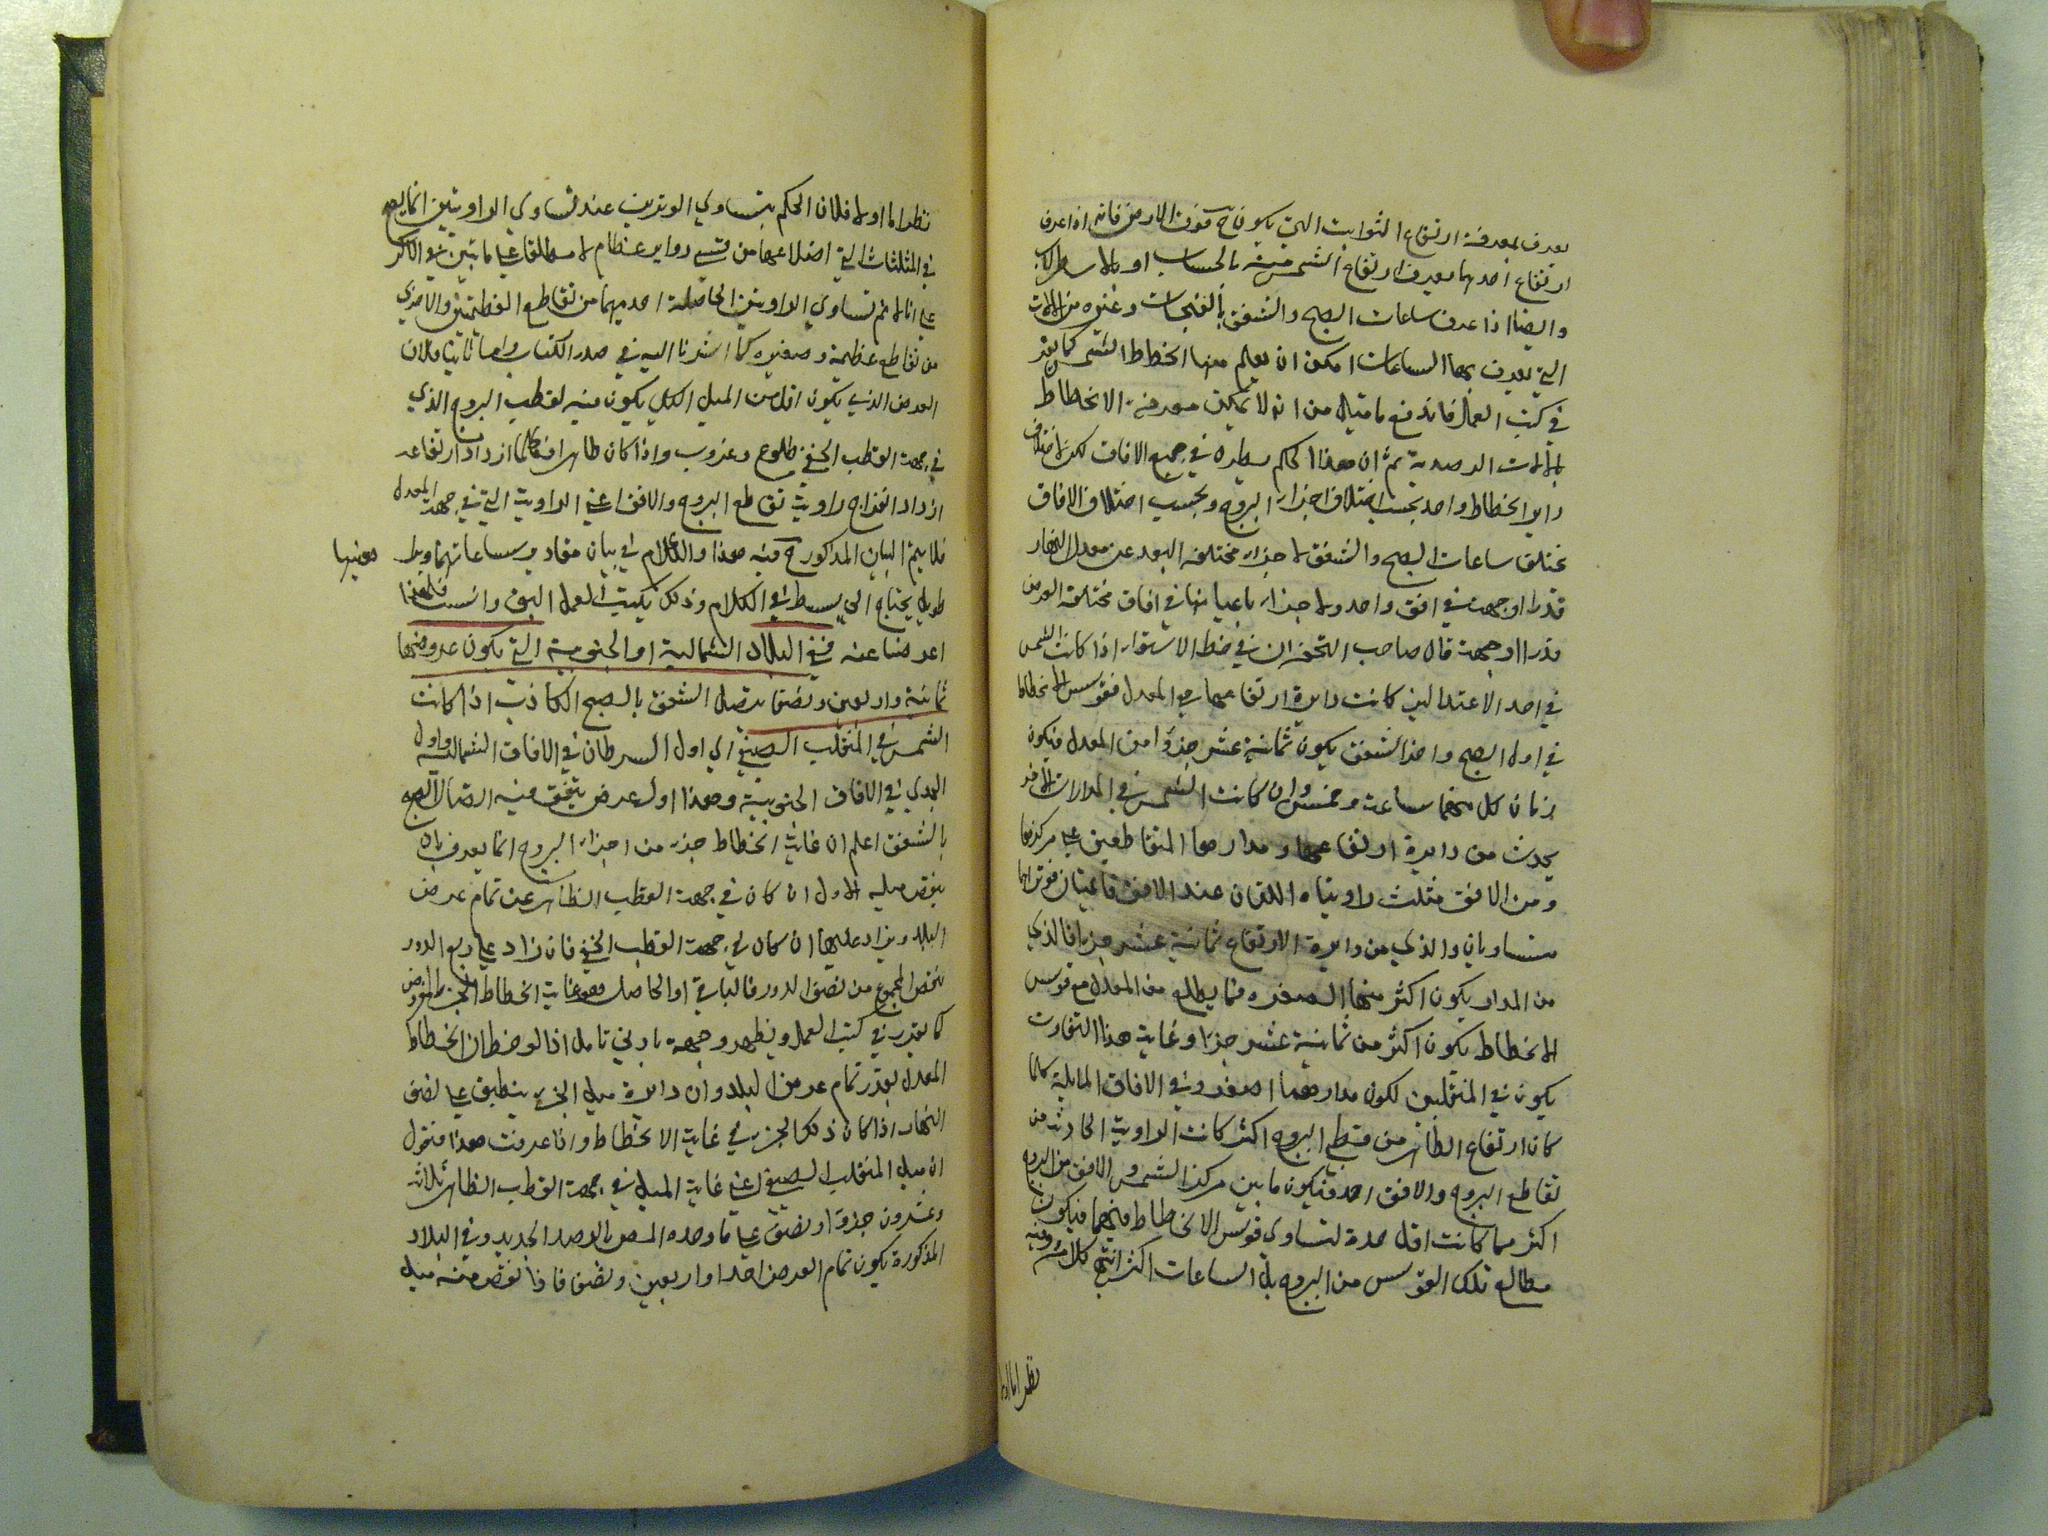 يعرف بمعرفة ارتفاع الثوابت التي يكون ح فوق الارض فانه اذا عرف
ارتفاع احديها يعرف ارتفاع الشمس منه بالحساب او بالاسطرلاب
وايضا اذا عرف ساعات الصبح والشفق بالفنجات وغيره من الالات
التي يعرف بها الساعات امكن ان يعلم منها انحطاط الشمس كما يقرر
في كتب العمل فاندفع ما قيل من انه لا يمكن معرفة الانحطاط
بالالات الرصدية ثم ان هذا الحكم يطرد في جميع الافاق لكن
دائر انحطاط واحد بحسب اختلاف اجزاء البروج وبحسب اختلاف الافاق
تختلف ساعات الصبح والشفق لاجزاء مختلفة البعد عن معدل النهار
قدرا او جهة في افق واحد ولاجزاء باعيانها في افاق مختلفة العرض
قدرا او جهة قال صاحب التحفة ان في خط الاستواء اذا كانت الشمس
في احد الاعتدالين كانت دايرة ارتفاعها هي المعدل فقوس الانحطاط
في اول الصبح واخر الشفق يكون ثمانية عشر جزؤا من المعدل فيكون
زمان كل منهما ساعة وخمس وان كانت الشمس في المدارات الاخر
يحدث من دايرة ارتفاعها ومدارها المتقاطعين على مركزها
ومن الافق مثلث زاويتاه اللتان عند الافق قائمتان فوتراهما
متساويان والذي من دايرة الارتفاع ثمانية عشر جزءا فالذي
من المدار يكون اكثر منها لصغره فما يطلع من المعدل مع قوس
الانحطاط يكون اكثر من ثمانية عشر جزءا وغاية هذا التفاوت
يكون في المنقلبين لكون مدارهما اصغر وفي الافاق المايلة كلما
كان ارتفاع الظاهر من قطبي البروج اكثر كانت الزاوية الحادثة من
تقاطع البروج والافق احد فيكون ما بين مركز الشمس والافق من البروج
اكثر مما كانت اقل حدة لتساوي قوس الانحطاط فيهما فيكون
مطالع تلك القوس من البروج بل الساعات اكثر انتهى كلامه وفيه
نظر اما اولا
نظر اما اولا فلان الحكم بتساوي الوترين عند تساوي الزاويتين انما يصح
في المثلثات التي اضلاعها من قسي دواير عظام لا مطلقا على ما تبين في الاكر
على انا لا نم تساوي الزاويتين الحاصلة احديهما من تقاطع العظيمتين والاخرى
من تقاطع عظيمة وصغيرة كما اشرنا اليه في صدر الكتاب واما ثانيا فلان
العرض الذي يكون اقل من الميل الكلي يكون فيه لقطب البروج الذي
في جهة القطب الخفي طلوع وغروب واذا كان ظاهرا فكلما ازداد ارتفاعه
ازداد انفراج زاوية تقاطع البروج والافق اعني الزاوية التي في جهة المعدل
فلا يتم البيان المذكور ح فيه هذا والكلام في بيان مقادير ساعاتهما
معنيها
طويل يحتاج الى بسط في الكلام وذلك بكتب العمل اليق وانسب فلهذا
اعرضنا عنه ففي البلاد الشمالية او الجنوبية التي يكون عروضها
ثمانية واربعين ونصفا يتصل الشفق بالصبح الكاذب اذا كانت
الشمس في المنقلب الصيفي اي اول السرطان في الافاق الشمالية واول
الجدي في الافاق الجنوبية وهذا اول عرض يتفق فيه اتصال الصبح
بالشفق اعلم ان غاية انحطاط جزء من اجزاء البروج انما يعرف بان
ينقص ميله الاول ان كان في جهة القطب الظاهر عن تمام عرض
البلد ويزاد عليه ان كان في جهة القطب الخفي فان زاد على ربع الدور
نقص المجموع من نصف الدور فالباقي او الحاصل هو غاية انحطاط الجزء المفروض
كما تقرر في كتب العمل ويظهر وجهه بادنى تامل اذا لوحظ ان انحطاط
المعدل بقدر تمام عرض البلد وان دايرة ميل الجزء ينطبق على نصف
النهار اذا كان ذلك الجزء في غاية الانحطاط واذا عرفت هذا فنقول
ان ميل المنقلب الصيفي اعني غاية الميل في جهة القطب الظاهر ثلاثة
وعشرون جزؤا ونصف على ما وجده المص بالرصد الجديد وفي البلاد
المذكورة يكون تمام العرض احدا واربعين ونصفا فاذا نقص منه ميل